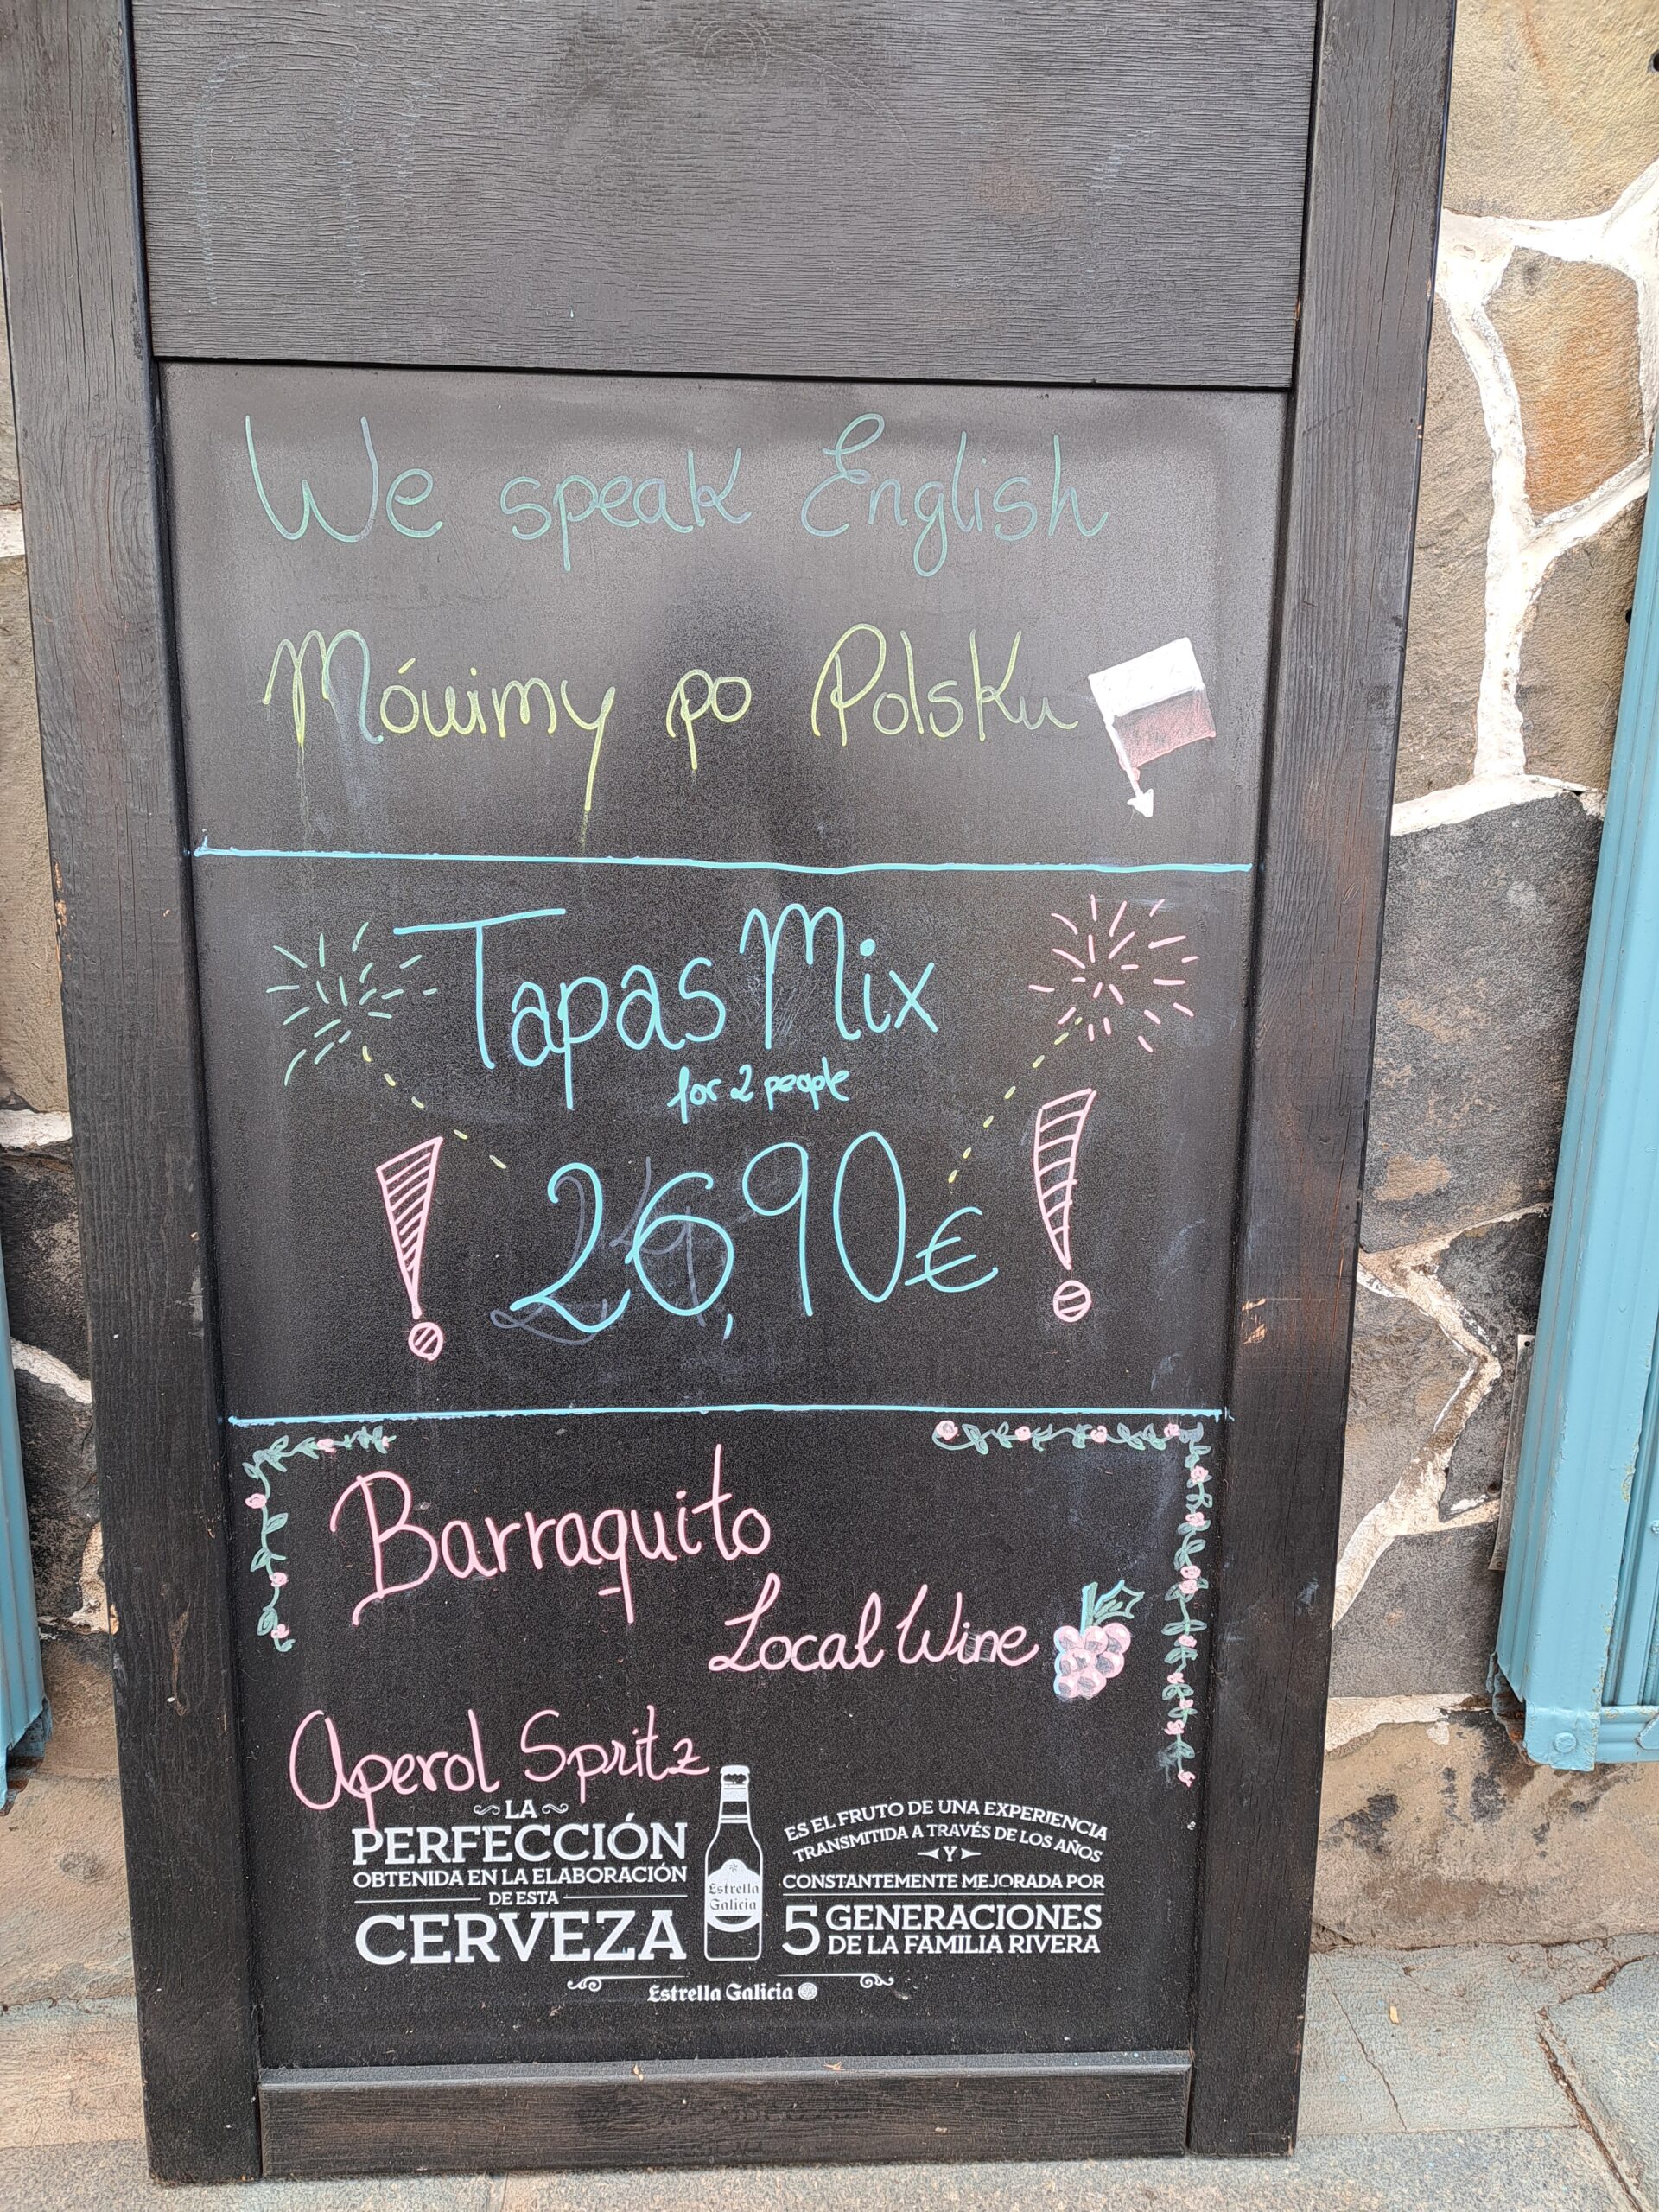 We speak English
Mówimy po Polsku
Tapas Mix
for 2 people
26,90€
Barraquito
Local Wine
Aperol Spritz
LA
PERFECCIÓN
OBTENIDA EN LA ELABORACIÓN
DE ESTA
CERVEZA
Estrella
Galicia
ES EL FRUTO DE UNA EXPERIENCIA
TRANSMITIDA A TRAVÉS DE LOS AÑOS
Y
CONSTANTEMENTE MEJORADA POR
5 GENERACIONES
DE LA FAMILIA RIVERA
Estrella Galicia